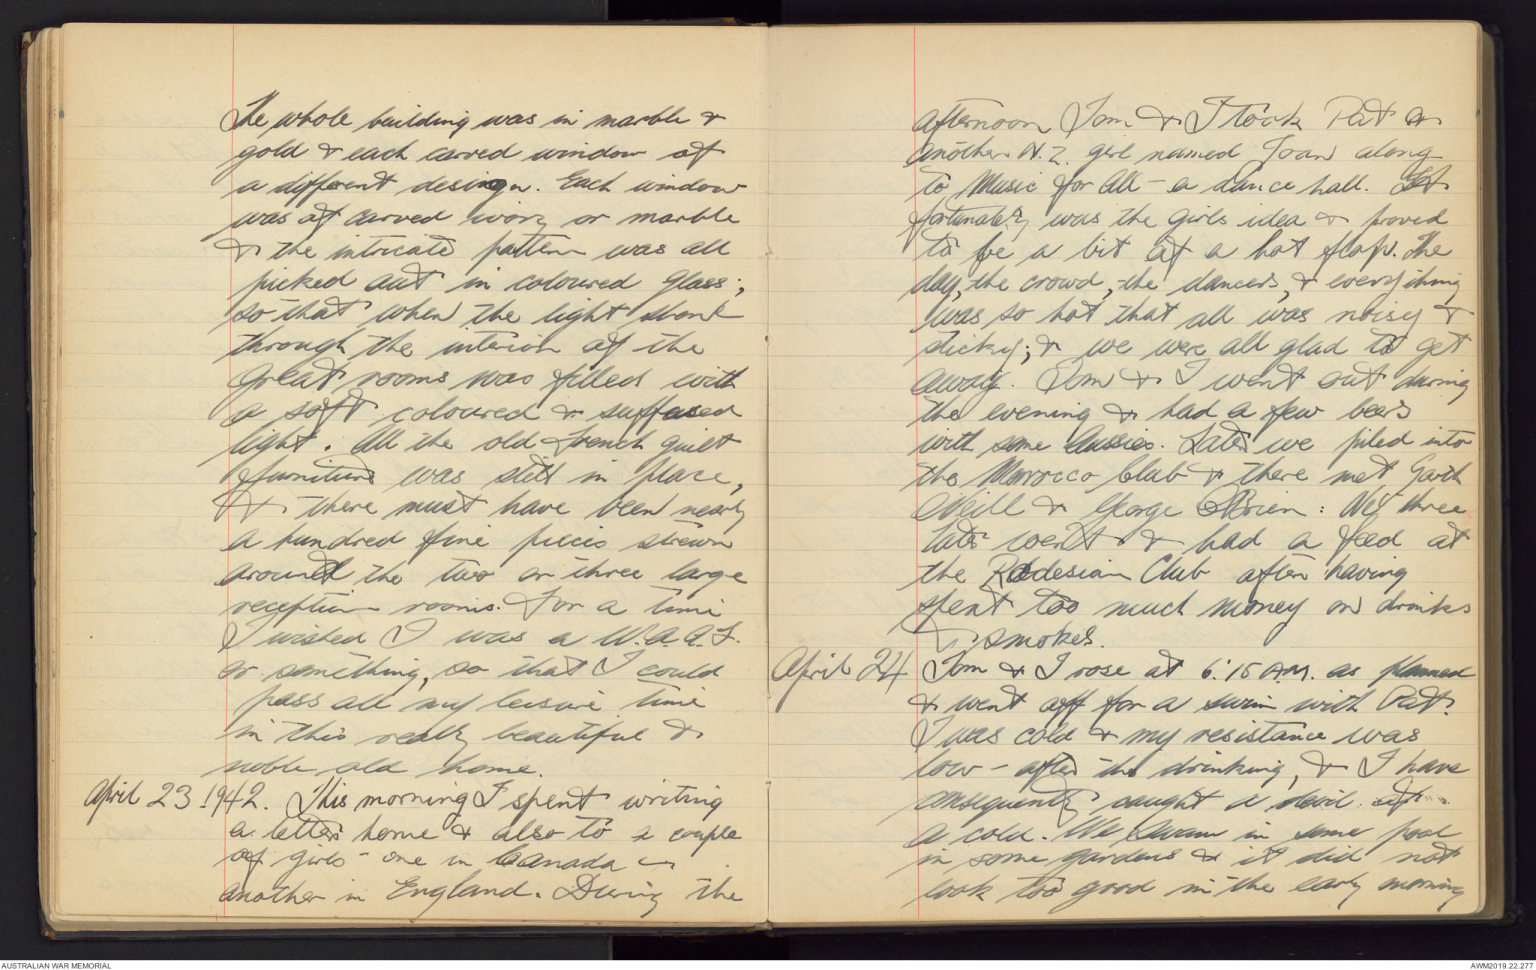 The whole building was in marble &
gold & each carved window of
a different design. Each window
was of carved ivory or marble
& the intricate pattern was all
picked out in coloured glass;
so that when the light shone
through the interior of the
great rooms was filled with
a soft coloured & suffused
light. All the old French guilt
furniture was still in place,
& there must have been nearly
a hundred fine pieces strewn
around the two or three large
reception rooms. For a time
I wished I was a W.A.A.F.
or something, so that I could
pass all my leisure time
in this really beautiful &
noble old home.
April 23 1942. This morning I spent writing
a letter home & also to a couple
of girls - one in Canada &
another in England. During the
afternoon Tom & I took Pat &
another N.Z. girl named Joan along
to Music for All - a dance hall.
fortunately was the girls idea & proved
to be a bit of a hot flop. The
day, the crowd, the dancers, & everything
was so hot that all was noisy &
sticky; & we were all glad to get
away. Tom & I went out during
the evening & had a few beers
with some Aussies. Later we piled into
the Morocco Club & there met Garth
Neill & George OBrien: We three
later went & had a feed at
the Rodesian Club after having
spent too much money on drinks
& smokes.
April 24 Tom & I rose at 6:15 A.M. as planned
& went off for a swim with Pat.
I was cold & my resistance was
low - after the drinking, & I have
consequently caught a devil of
a cold. We swam in some pool
in some gardens & it did not
look too good in the early morning
AUSTRALIAN WAR MEMORIAL
AWM2019.22.277